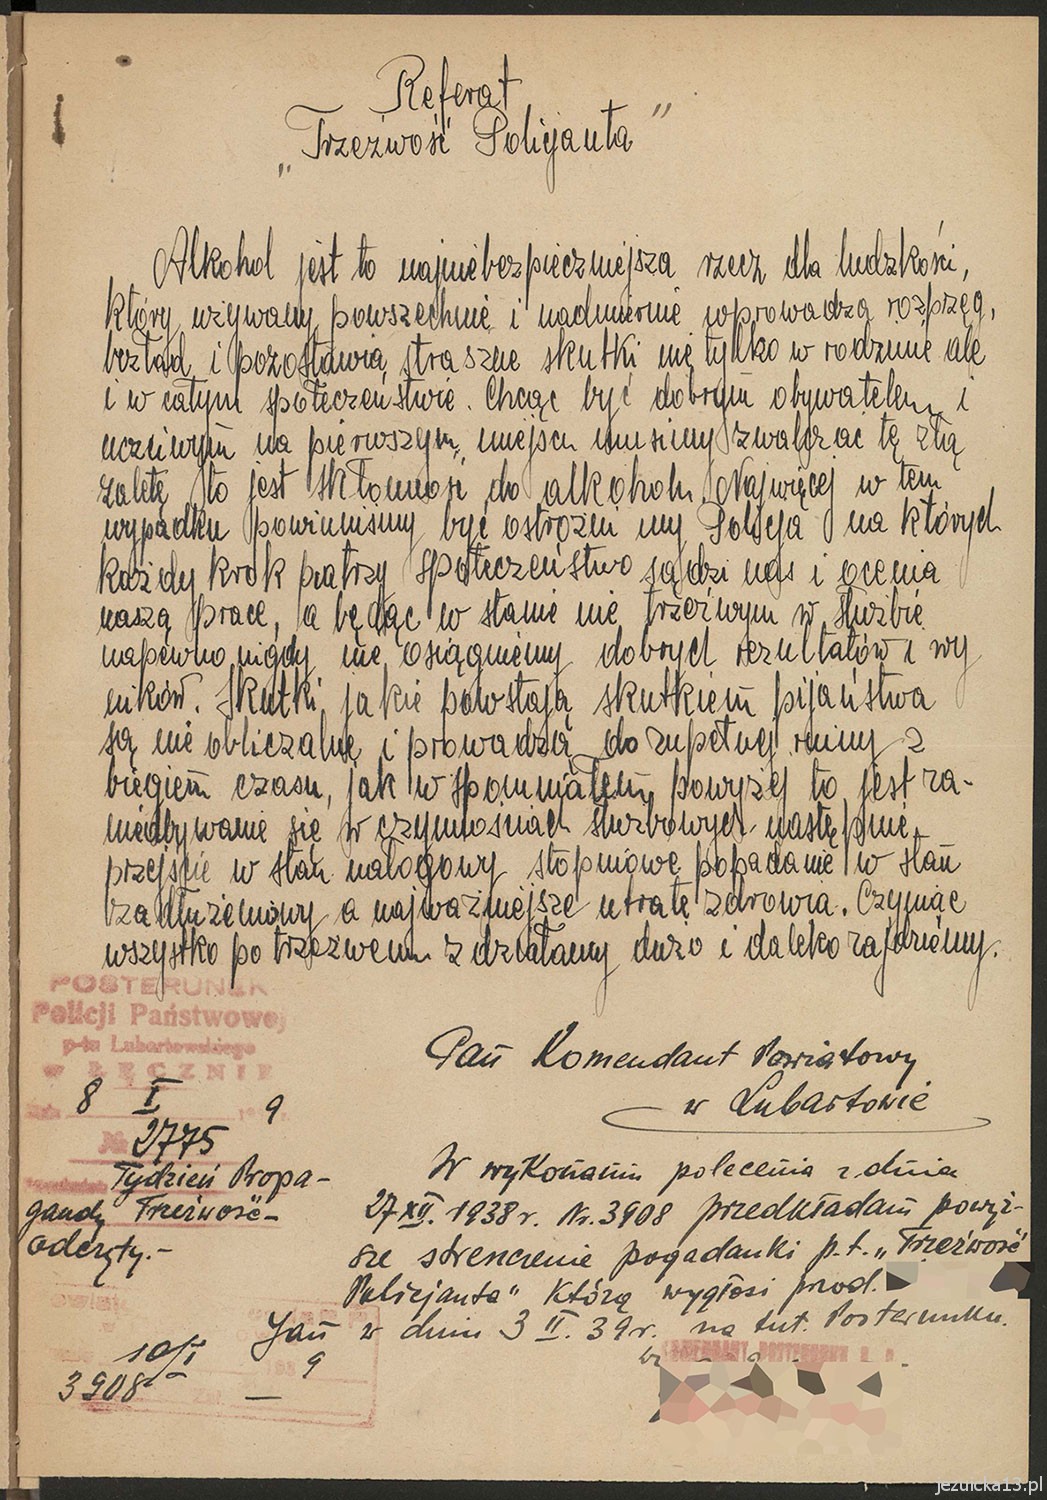 Referat
„Trzeźwość Policjanta"
Alkohol jest to najniebezpieczniejsza rzecz dla ludzkości,
który używany powszechnie i nadmiernie wprowadza rozprzęg,
bezład i pozostawia straszne skutki nie tylko w rodzinie ale
i w całym społeczeństwie. Chcąc być dobrym obywatelem i
uczciwym na pierwszym miejscu musimy zwalczać tę złą
zaletę to jest skłonność do alkoholu. Najwięcej w tem
wypadku powinniśmy być ostrożni my Policja na których
każdy krok patrzy społeczeństwo sądzi nas i ocenia
naszą pracę, a będąc w stanie nie trzeźwym w służbie
napewno nigdy nie osiągniemy dobrych rezultatów i wy
ników. Skutki jakie powstają skutkiem pijaństwa
są nie obliczalne i prowadzą do zupełnej ruiny z
biegiem czasu, jak wspomniałem powyżej to jest za-
niedbywanie się w czynnościach służbowych następnie
przejście w stan nałogowy stopniowe popadanie w stan
zadłużeniowy a najważniejsze utratę zdrowia. Czyniąc
wszystko po trzeźwemu zdziałamy dużo i daleko zajdziemy.
POSTERUNEK
Policji Państwowej
p-tu Lubartowskiego
w ŁĘCZNIE
8 I 9
№ 2775
Tydzień Propa-
gandy Trzeźwość-
odczyty.-
Pan Komendant Powiatowy
w Lubartowie
W wykonaniu polecenia z dnia
27 XII. 1938 r. Nr. 3908 przedkładam powyż-
sze streszczenie pogadanki p.t. „Trzeźwość
Policjanta" którą wygłosi przod.
Jan w dniu 3 II. 39 r. na tut. Posterunku.
10/I 9
3908
KOMENDANT POSTERUNKU P. P.
jezuicka13.pl